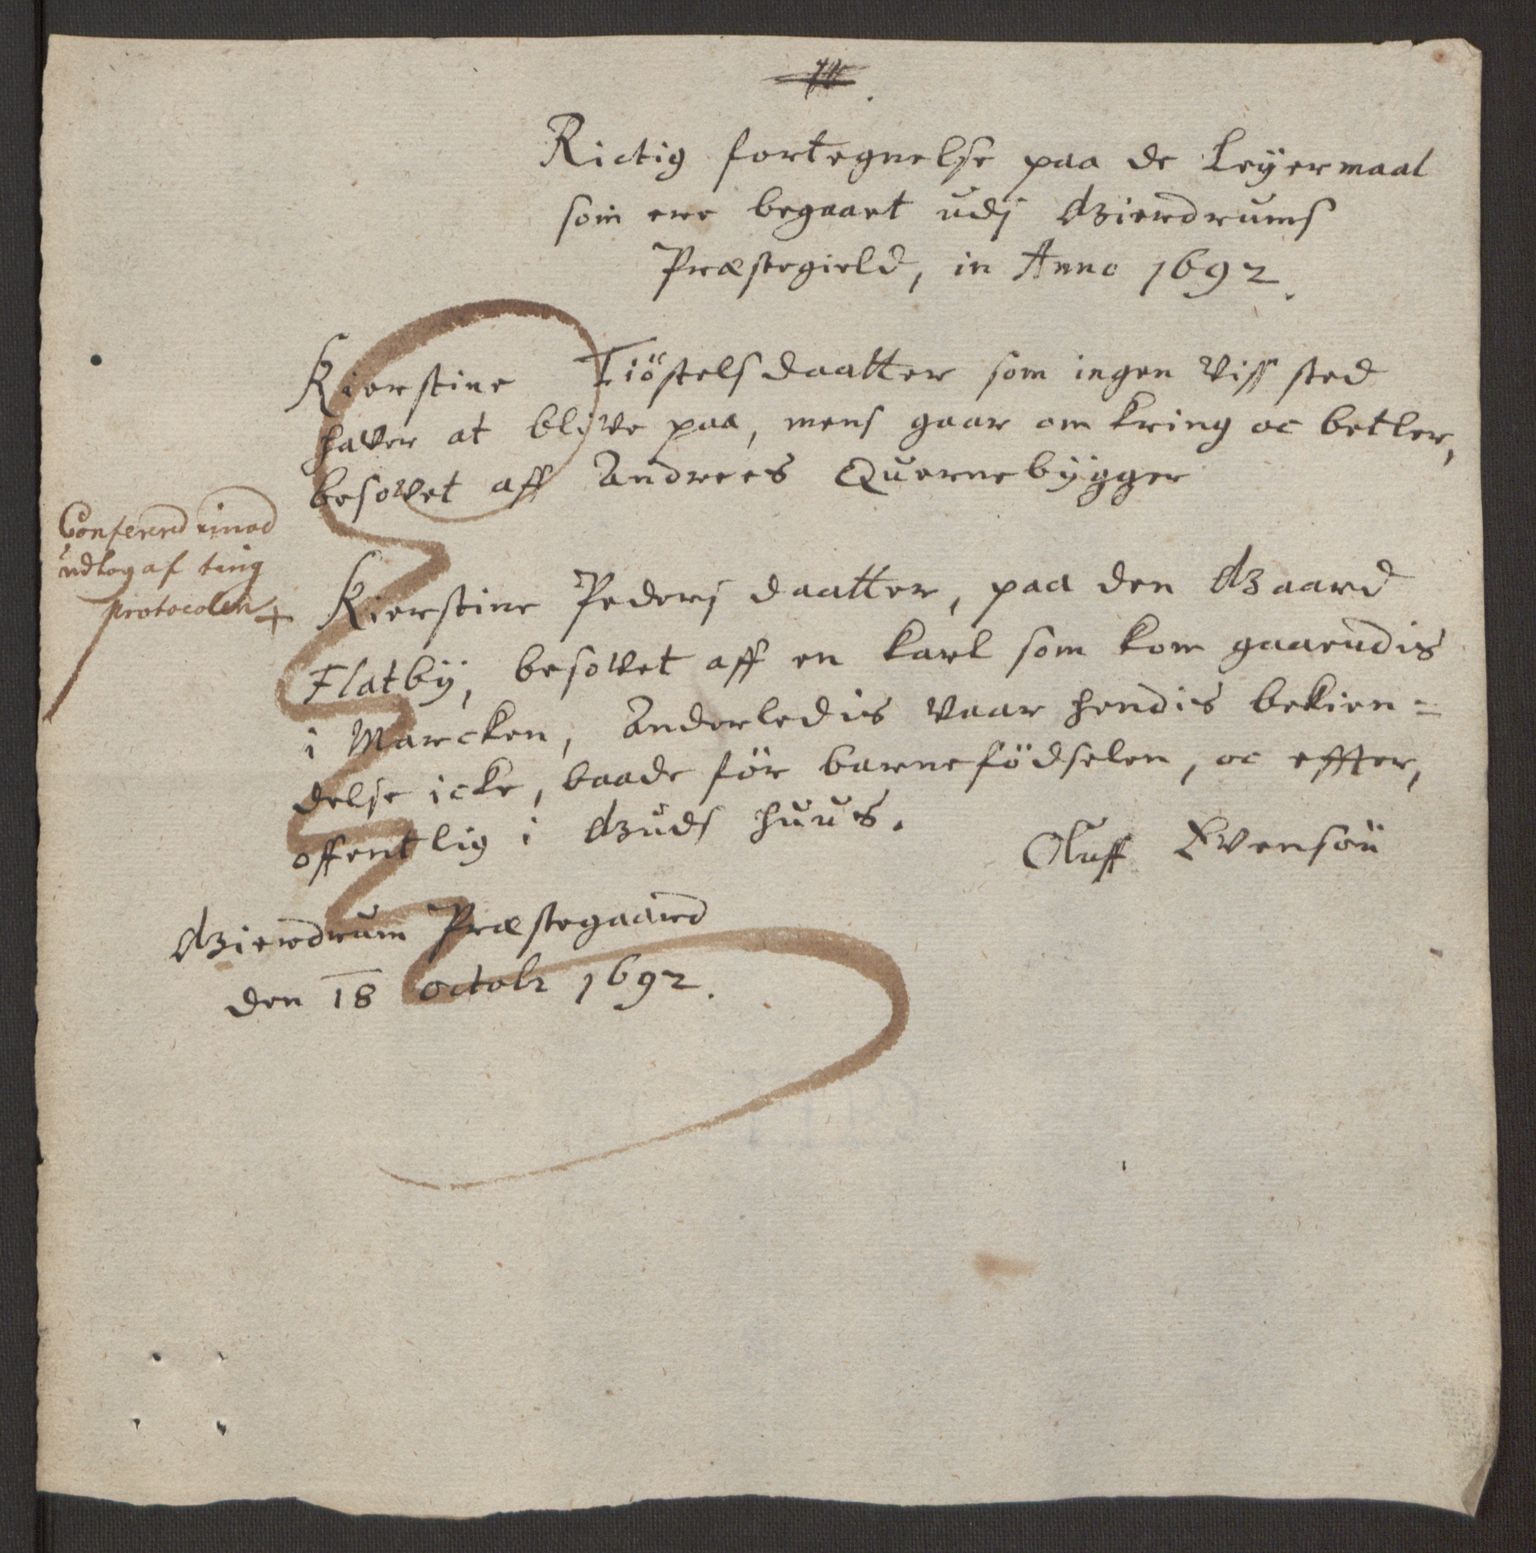 Rictig fortegnelse paa de Leÿermaal
som ere begaaet udj Gierdrums
Præstegield, in Anno 1692.
Kierstine Tiöstelsdaatter som ingen viss sted
haver at blive paa, mens gaar om kring oc betler,
besovet aff Andrees Quernebÿgger
Conferered imod
udtog af ting
protocolen
Kierstine Pedersdaatter, paa den Gaard
Flatbÿ, besovet aff en karl som kom gaaendis
i Marcken, Anderledis vaar hendis bekien=
delse icke, baade för barnefödselen, oc effter,
offentlig i Guds huus.
Oluff Evensön
Gierdrum Præstegaard
den 18 octobr 1692.